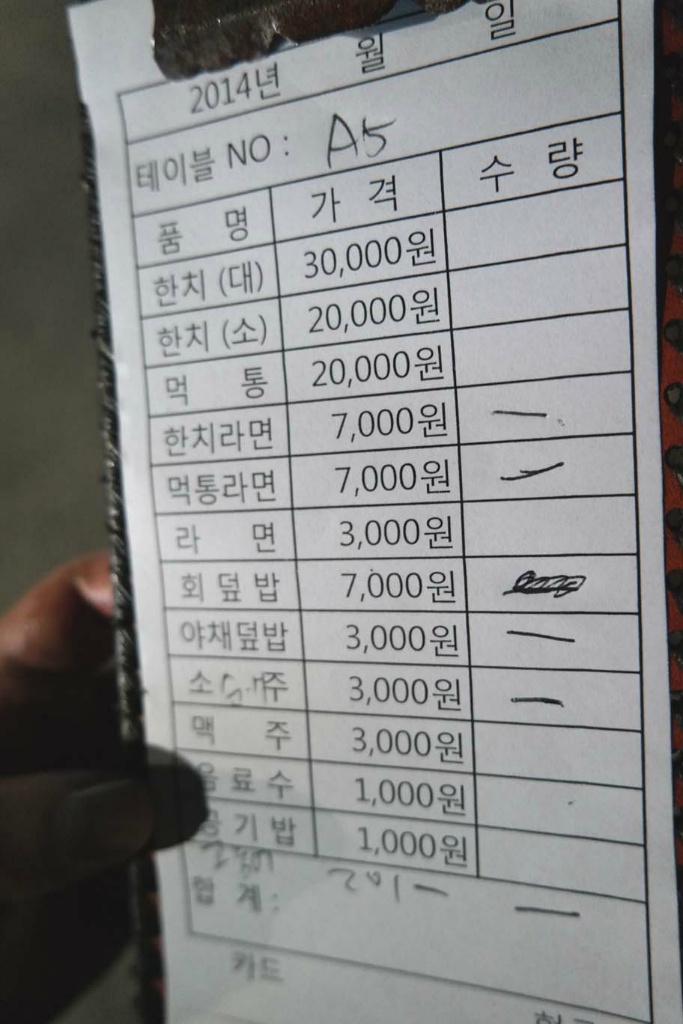 2014년 월 일
테이블 NO : A5
품 명 가 격 수 량
한치 (대) 30,000원
한치 (소) 20,000원
먹 통 20,000원
한치라면 7,000원 一
먹통라면 7,000원 一
라 면 3,000원
회 덮 밥 7,000원
야채덮밥 3,000원 一
소 주 3,000원 一
맥 주 3,000원
음 료 수 1,000원
공 기 밥 1,000원
합 계 :
카드